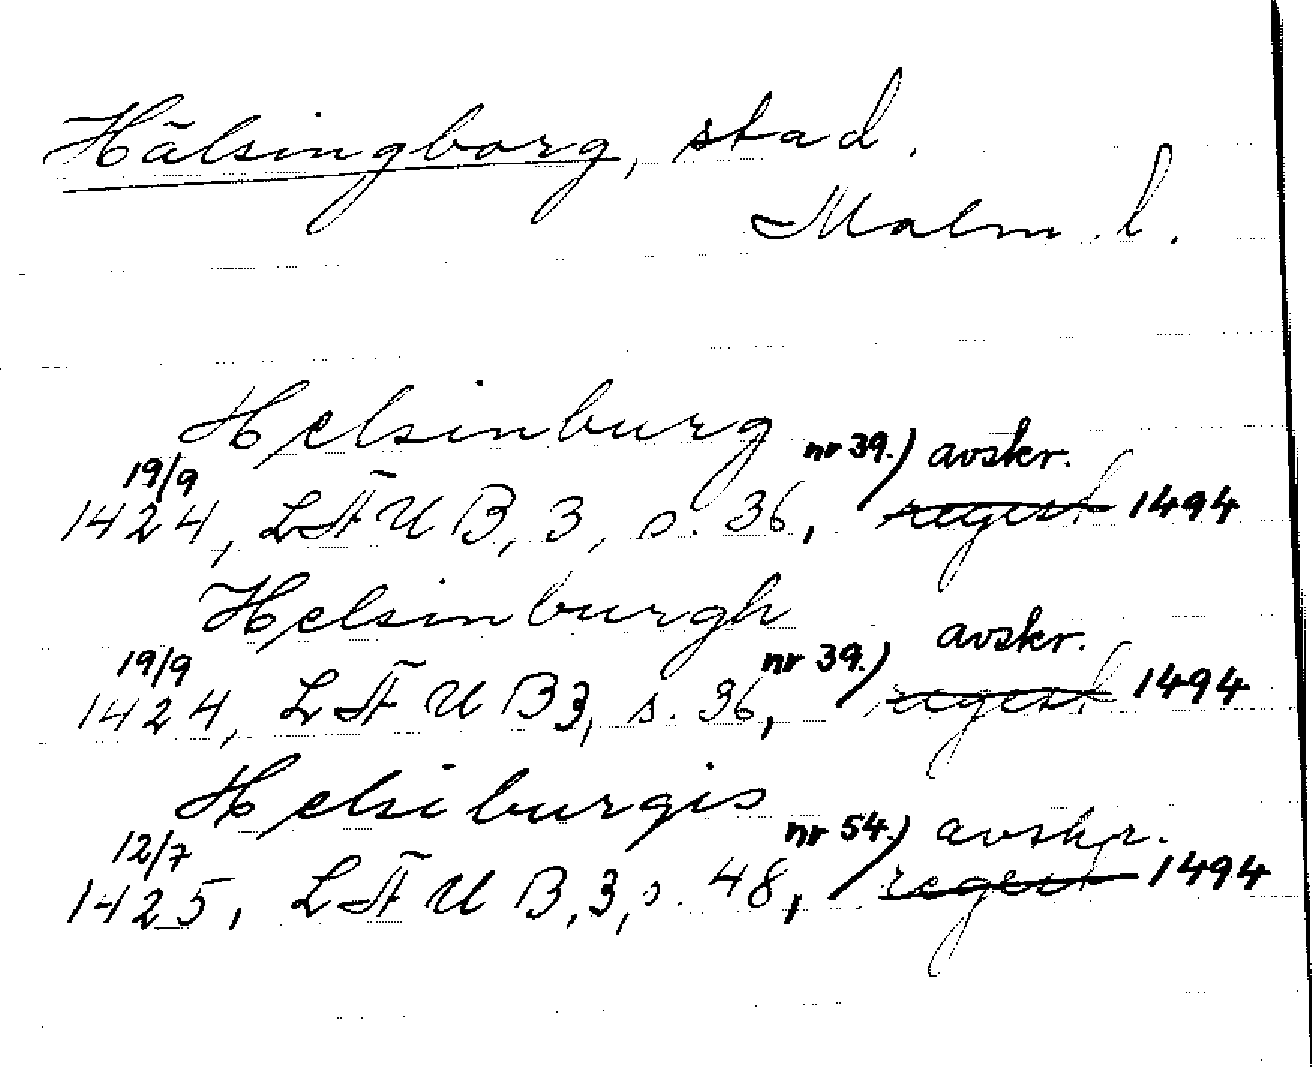 Hälsingborg, stad.
Malm. l.
Helsinburg
19/9 1424, LÄUB, 3, s. 36, nr 39.) avskr. regest 1494
Helsinburgh
19/9 1424, LÄUB 3, s. 36, nr 39.) avskr. regest 1494
Helsiburgis
12/7 1425, LÄUB, 3, s. 48, nr 54.) avskr. regest 1494